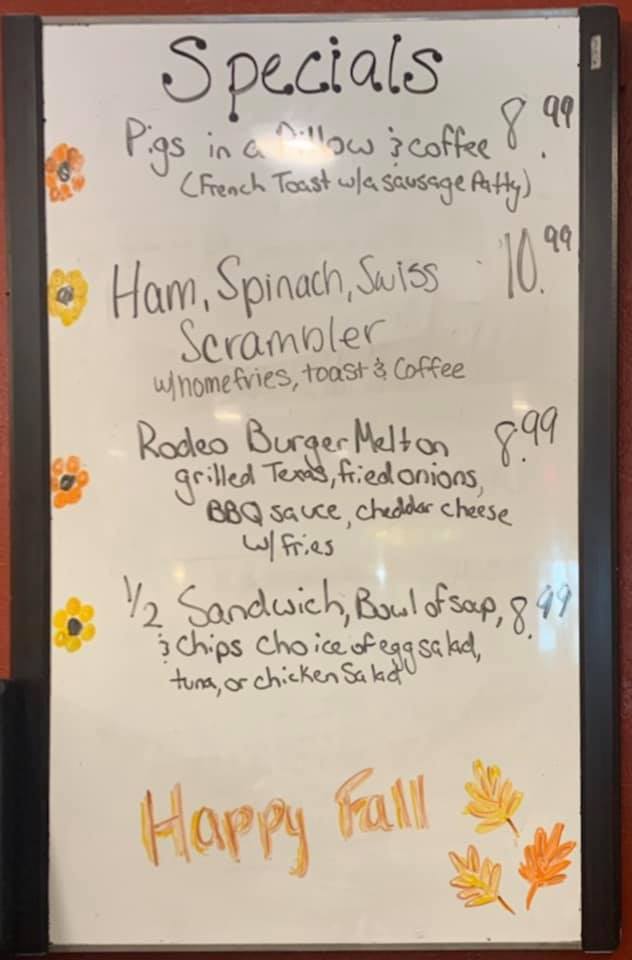 Specials
Pigs in a Pillow & coffee 8.99
(French Toast w/a sausage Patty)
Ham, Spinach, Swiss 10.99
Scrambler
w/homefries, toast & Coffee
Rodeo Burger Melt on 8.99
grilled Texas, fried onions,
BBQ sauce, cheddar cheese
w/ fries
1/2 Sandwich, Bowl of soup, 8.99
& Chips Choice of egg salad,
tuna, or chicken Salad
Happy Fall